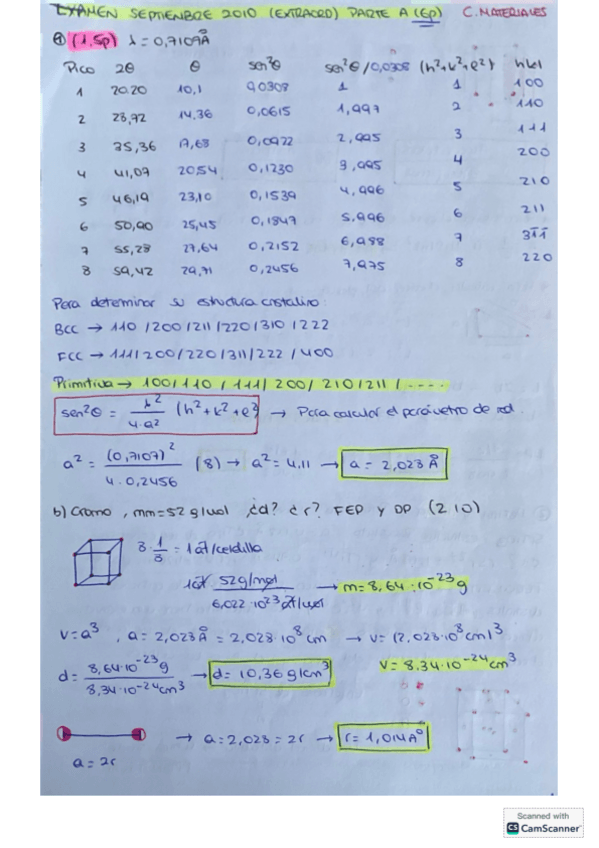 EXAMEN SEPTIEMBRE 2010 (EXTRAORD) PARTE A (6p) C. MATERIALES
a) (1,5p) λ = 0,7107Å
Pico 2θ θ sen²θ sen²θ/0,0308 (h²+k²+l²) hkl
1 20.20 10,1 0,0308 1 1 100
2 28,72 14,36 0,0615 1,997 2 110
3 35,36 17,68 0,0922 2,995 3 111
4 41,07 20,54 0,1230 3,995 4 200
5 46,19 23,10 0,1539 4,996 5 210
6 50,90 25,45 0,1847 5,996 6 211
7 55,28 27,64 0,2152 6,988 7
8 59,42 29,71 0,2456 7,975 8 220
Para determinar su estructura cristalina:
BCC → 110 / 200 / 211 / 220 / 310 / 222
FCC → 111 / 200 / 220 / 311 / 222 / 400
Primitiva → 100 / 110 / 111 / 200 / 210 / 211 / ....
sen²θ = λ²/4·a² (h²+k²+l²) → Para calcular el parámetro de red.
a² = (0,7107)²/4·0,2456 (8) → a² = 4,11 → a = 2,023 Å
b) Cromo, mm=52 g/mol ¿d? ¿r? FEP y DP (210)
8·1/8 = 1at/celdilla
1at 52g/mol/6,022·10²³ at/mol → m=8,64·10⁻²³g
v=a³, a=2,023Å = 2,023·10⁸ cm → v= (2,023·10⁸cm)³
v=8,34·10⁻²⁴cm³
d= 8,64·10⁻²³g/8,34·10⁻²⁴cm³ → d= 10,36 g/cm³
→ a=2,023 = 2r → r=1,014Å
a=2r
Scanned with
CS CamScanner